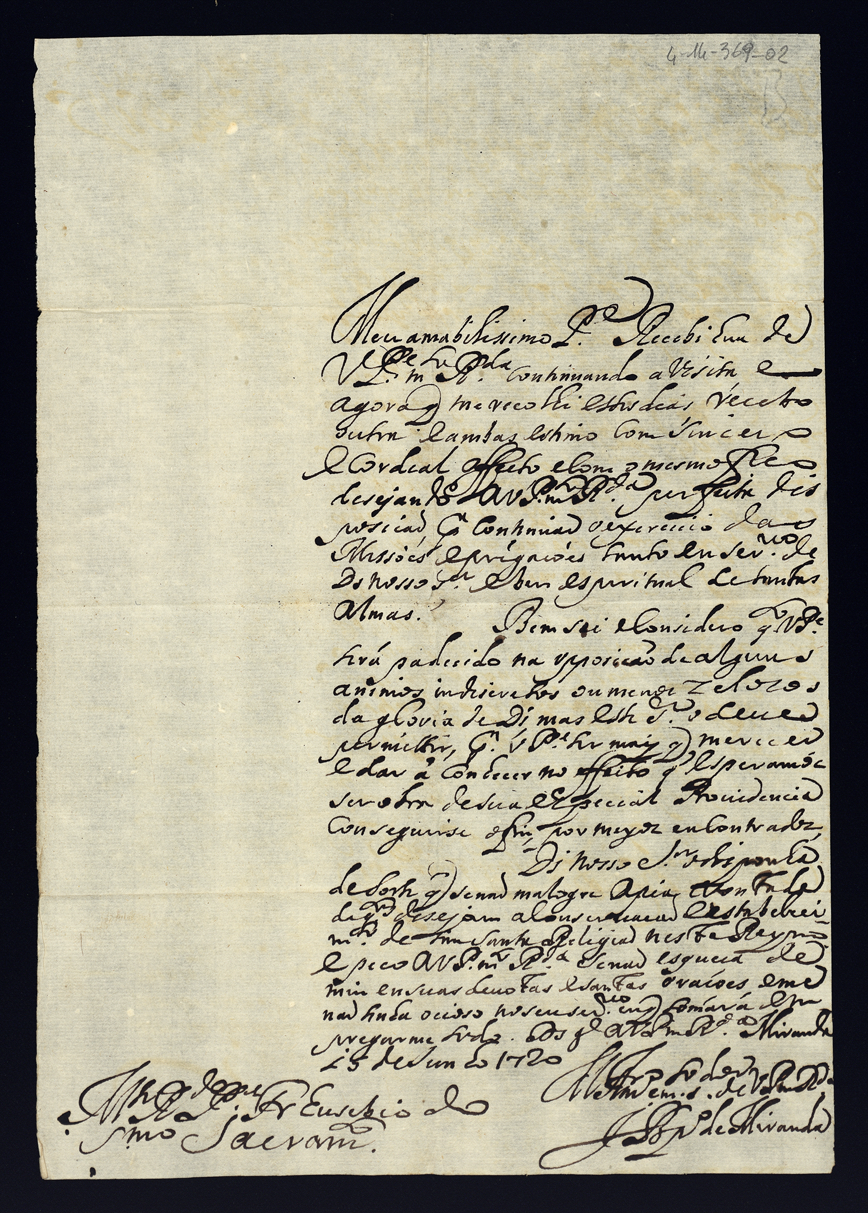 4-14-369-02
B
Meu amabilissimo P.e Recebi hua de
V P.e m.to R.da continuando a visita e
agora q me recolhi estes dias recebo
outra e ambas estimo com sincero
e cordeal affecto e com o mesmo fico
desejando a V P. m.to R.da perfeita dis
posicaó p.a continuar o exercicio das
Missoés e prégacoés tanto em ser.uco de
Ds nosso S.r e bem espiritual de tantas
Almas.
Bem sei e considero q V P.e
terá padecido na opposicaó de alguns
animos indiscretos ou menos zelozos
da gloria de Ds mas este S.r o deue
permittir, p.a V P.e ter mais q merecer
e dar a conhecer no effeito q esperamos
ser obra de sua especial Prouidencia
conseguirse o fim por meyos encontrados,
Ds nosso S.r o disponha
de sorte q senaó malogre a pia vontade
de q.m desejam a conseruacaó e estabeleci
m.to de tam Santa Religiaó neste Reyno
e peco a V P. m.to R.da senaó esqueca de
mim em suas deuotas e santas oracoés e me
naó tenha ocioso no seu ser.uco em q tomára em
pregarme todo. Ds g.de a V P m R.da Miranda
15 de Junho 1720
J. Bp.o de Miranda
M.to R.do P.e Fr Eusebio do
S.mo Sacram.to